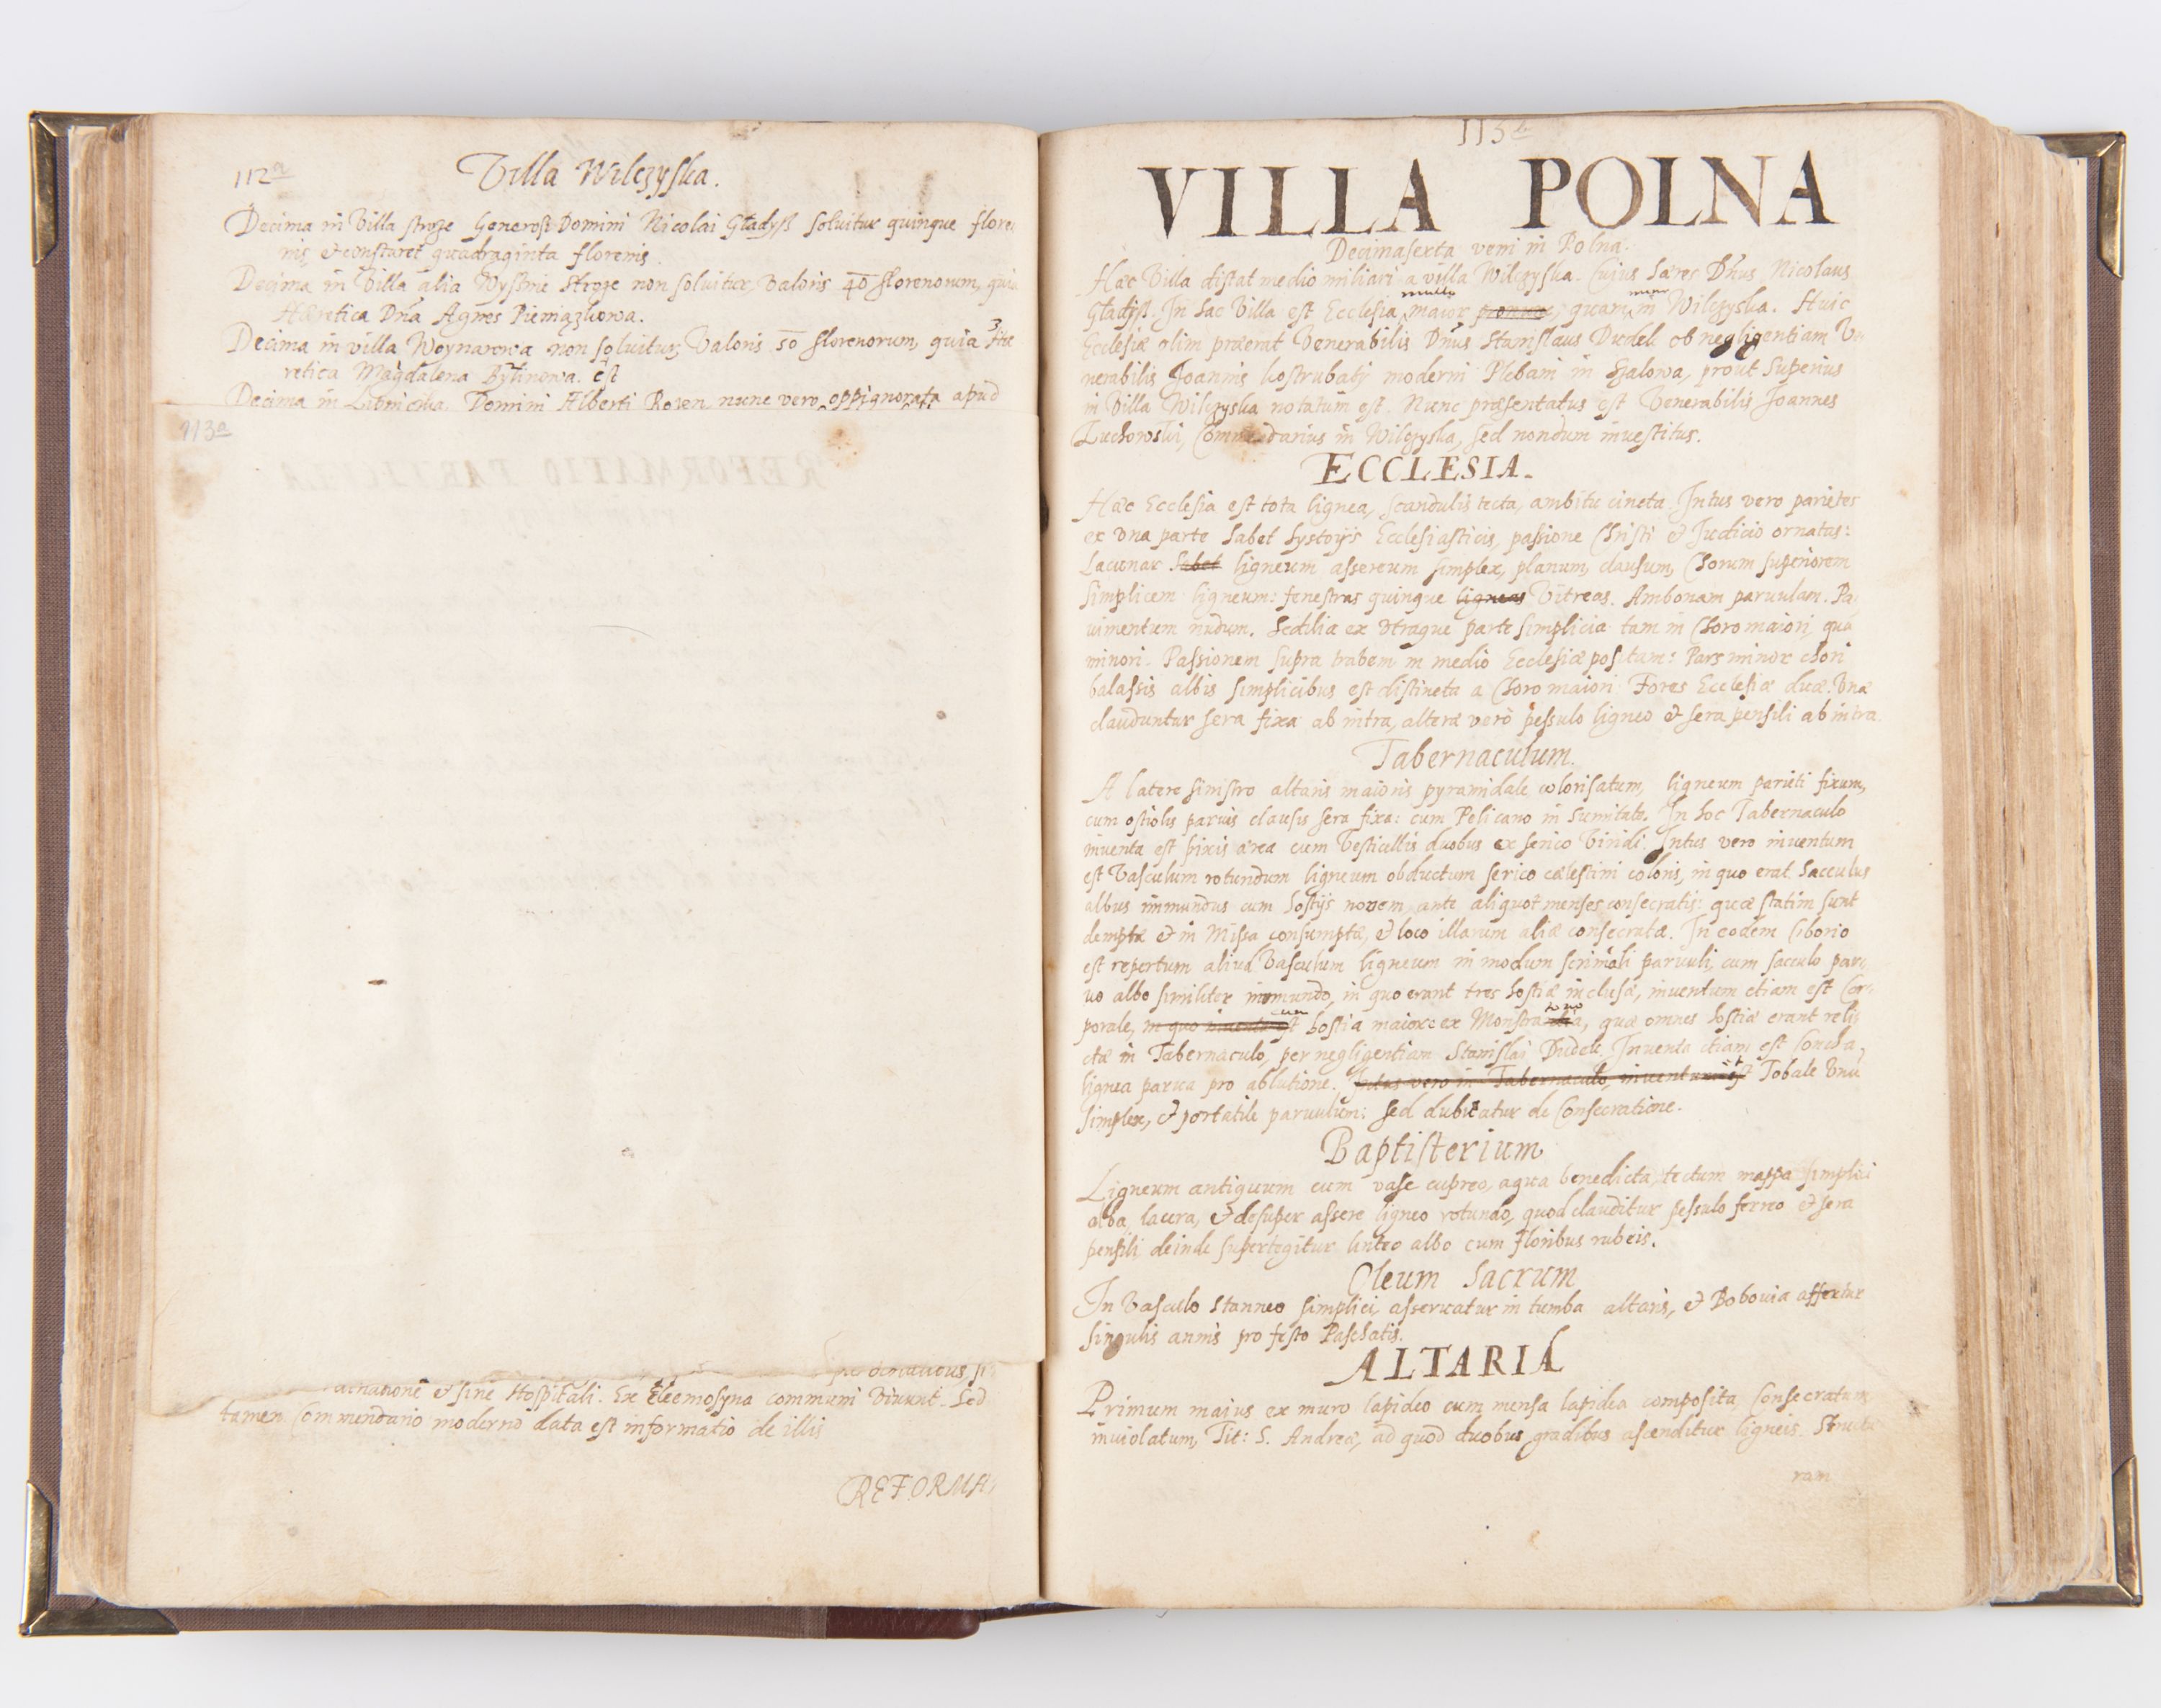 112a
Villa Wilczyska.
Decima in Villa stroze Generosi Domini Nicolai Gładyss soluitur quinque flore
nis, et constaret quadraginta florenis.
Decima in Villa alia Wyssnie Stroze non soluitur, valoris 40 florenorum, quia
Hæretica Dna Agnes Pieniązkowa.
Decima in villa Woynarowa non soluitur, Valoris 50 florenorum, quia Hæ
retica Magdalena Bylinowa. est
Decima in Domini Alberti Rozen nunc vero oppignorata apud
113a
et sine Hospitali. Ex Eleemosyna communi Viuunt. Sed
tamen Commendario moderno data est informatio de illis
REFORMA
113b
VILLA POLNA
Decimasexta veni in Polna.
Hæc Villa distat medio miliari a villa Wilczyska. Cuius hæres Dnus Nicolaus
Gładyss. In hac Villa est Ecclesia multo maior quam nunc in Wilczyska. Huic
Ecclesiæ olim præerat Venerabilis Dnus Stanislaus Dudek ob negligentiam Ve
nerabilis Joannis kostrubatij moderni Plebani in Szalowa, prout Superius
in Villa Wilczyska notatum est. Nunc præsentatus est Venerabilis Joannes
Tuchowski, Commendarius in Wilczyska, sed nondum inuestitus.
ECCLESIA.
Hæc Ecclesia est tota lignea, scandulis tecta, ambitu cincta. Intus vero parietes
ex vna parte habet hystorijs Ecclesiasticis, passione Christi et Judicio ornatas:
Lacunar habet ligneum assereum simplex, planum, clausum, Chorum superiorem
simplicem ligneum: fenestras quinque ligneas Vitreas. Ambonam paruulam. Pa
uimentum nudum. Sedilia ex vtraque parte simplicia tam in Choro maiori, quã
minori. Passionem supra trabem in medio Ecclesiæ positam: Pars minor chori
balassis albis simplicibus est distincta a Choro maiori. Fores Ecclesiæ duæ. Vna
clauduntur sera fixa ab intra, altera verò pessulo ligneo et sera pensili ab intra.
Tabernaculum.
A latere sinistro altaris maioris pyramidale colorisatum, ligneum parieti fixum,
cum ostiolis paruis clausis sera fixa: cum Pelicano in sumitate. In hoc Tabernaculo
inuenta est pixis ærea cum Vesticullis duobus ex serico Viridi. Intus vero inuentum
est Vasculum rotundum ligneum obductum serico cælestini coloris, in quo erat Sacculus
albus immundus cum hostijs novem ante aliquot menses consecratis: quæ statim sunt
demptæ et in Missa consumptæ, et loco illarum aliæ consecratæ. In eodem Ciborio
est repertum aliud Vasculum ligneum in modum scrinioli paruuli, cum sacculo par
uo albo similiter immundo, in quo erant tres hostiæ inclusæ, inuentum etiam est Cor
porale, in quo inuenta est cum hostia maiore ex Monstra, quæ omnes hostiæ erant reli
ctæ in Tabernaculo, per negligentiam Stanislai Dudek. Inuenta etiam est Concha
lignea parua pro ablutione. Intus vero in Tabernaculo, inuentum est Tobale vnũ
simplex, et portatile paruulum: sed dubitatur de Consecratione.
Baptisterium
Ligneum antiquum cum vase cupreo, aqua benedicta, tectum mappa simplici
alba, lacera, et desuper assere ligneo rotundo, quod clauditur pessulo ferreo et sera
pensili deinde supertegitur linteo albo cum floribus rubeis.
Oleum Sacrum
In Vasculo stanneo simplici asseruatur in tumba altaris, et Bobouia affertur
singulis annis pro festo Paschatis.
ALTARIA
Primum maius ex muro lapideo cum mensa lapidea composita, Consecratum
inuiolatum, Tit: S. Andreæ, ad quod duobus gradibus ascenditur ligneis. Structu
ram